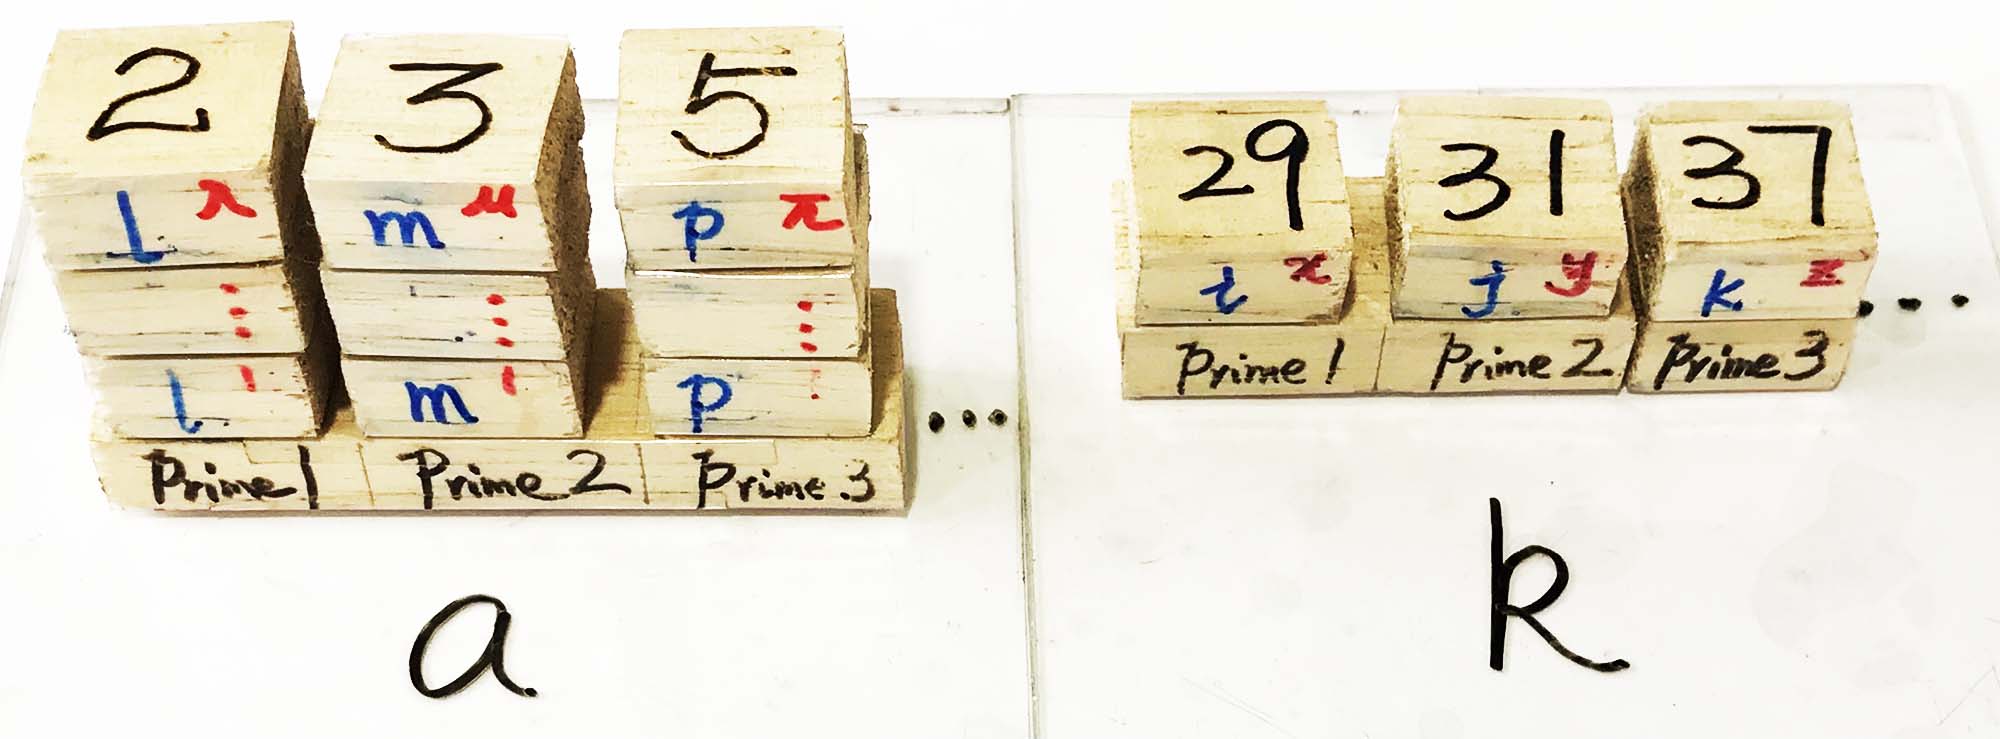 2 3 5
l λ m μ p π
⋮ ⋮ ⋮
l 1 m 1 p
Prime 1 Prime 2 Prime 3 ...
a
29 31 37
i x j y k z ...
Prime 1 Prime 2 Prime 3
k